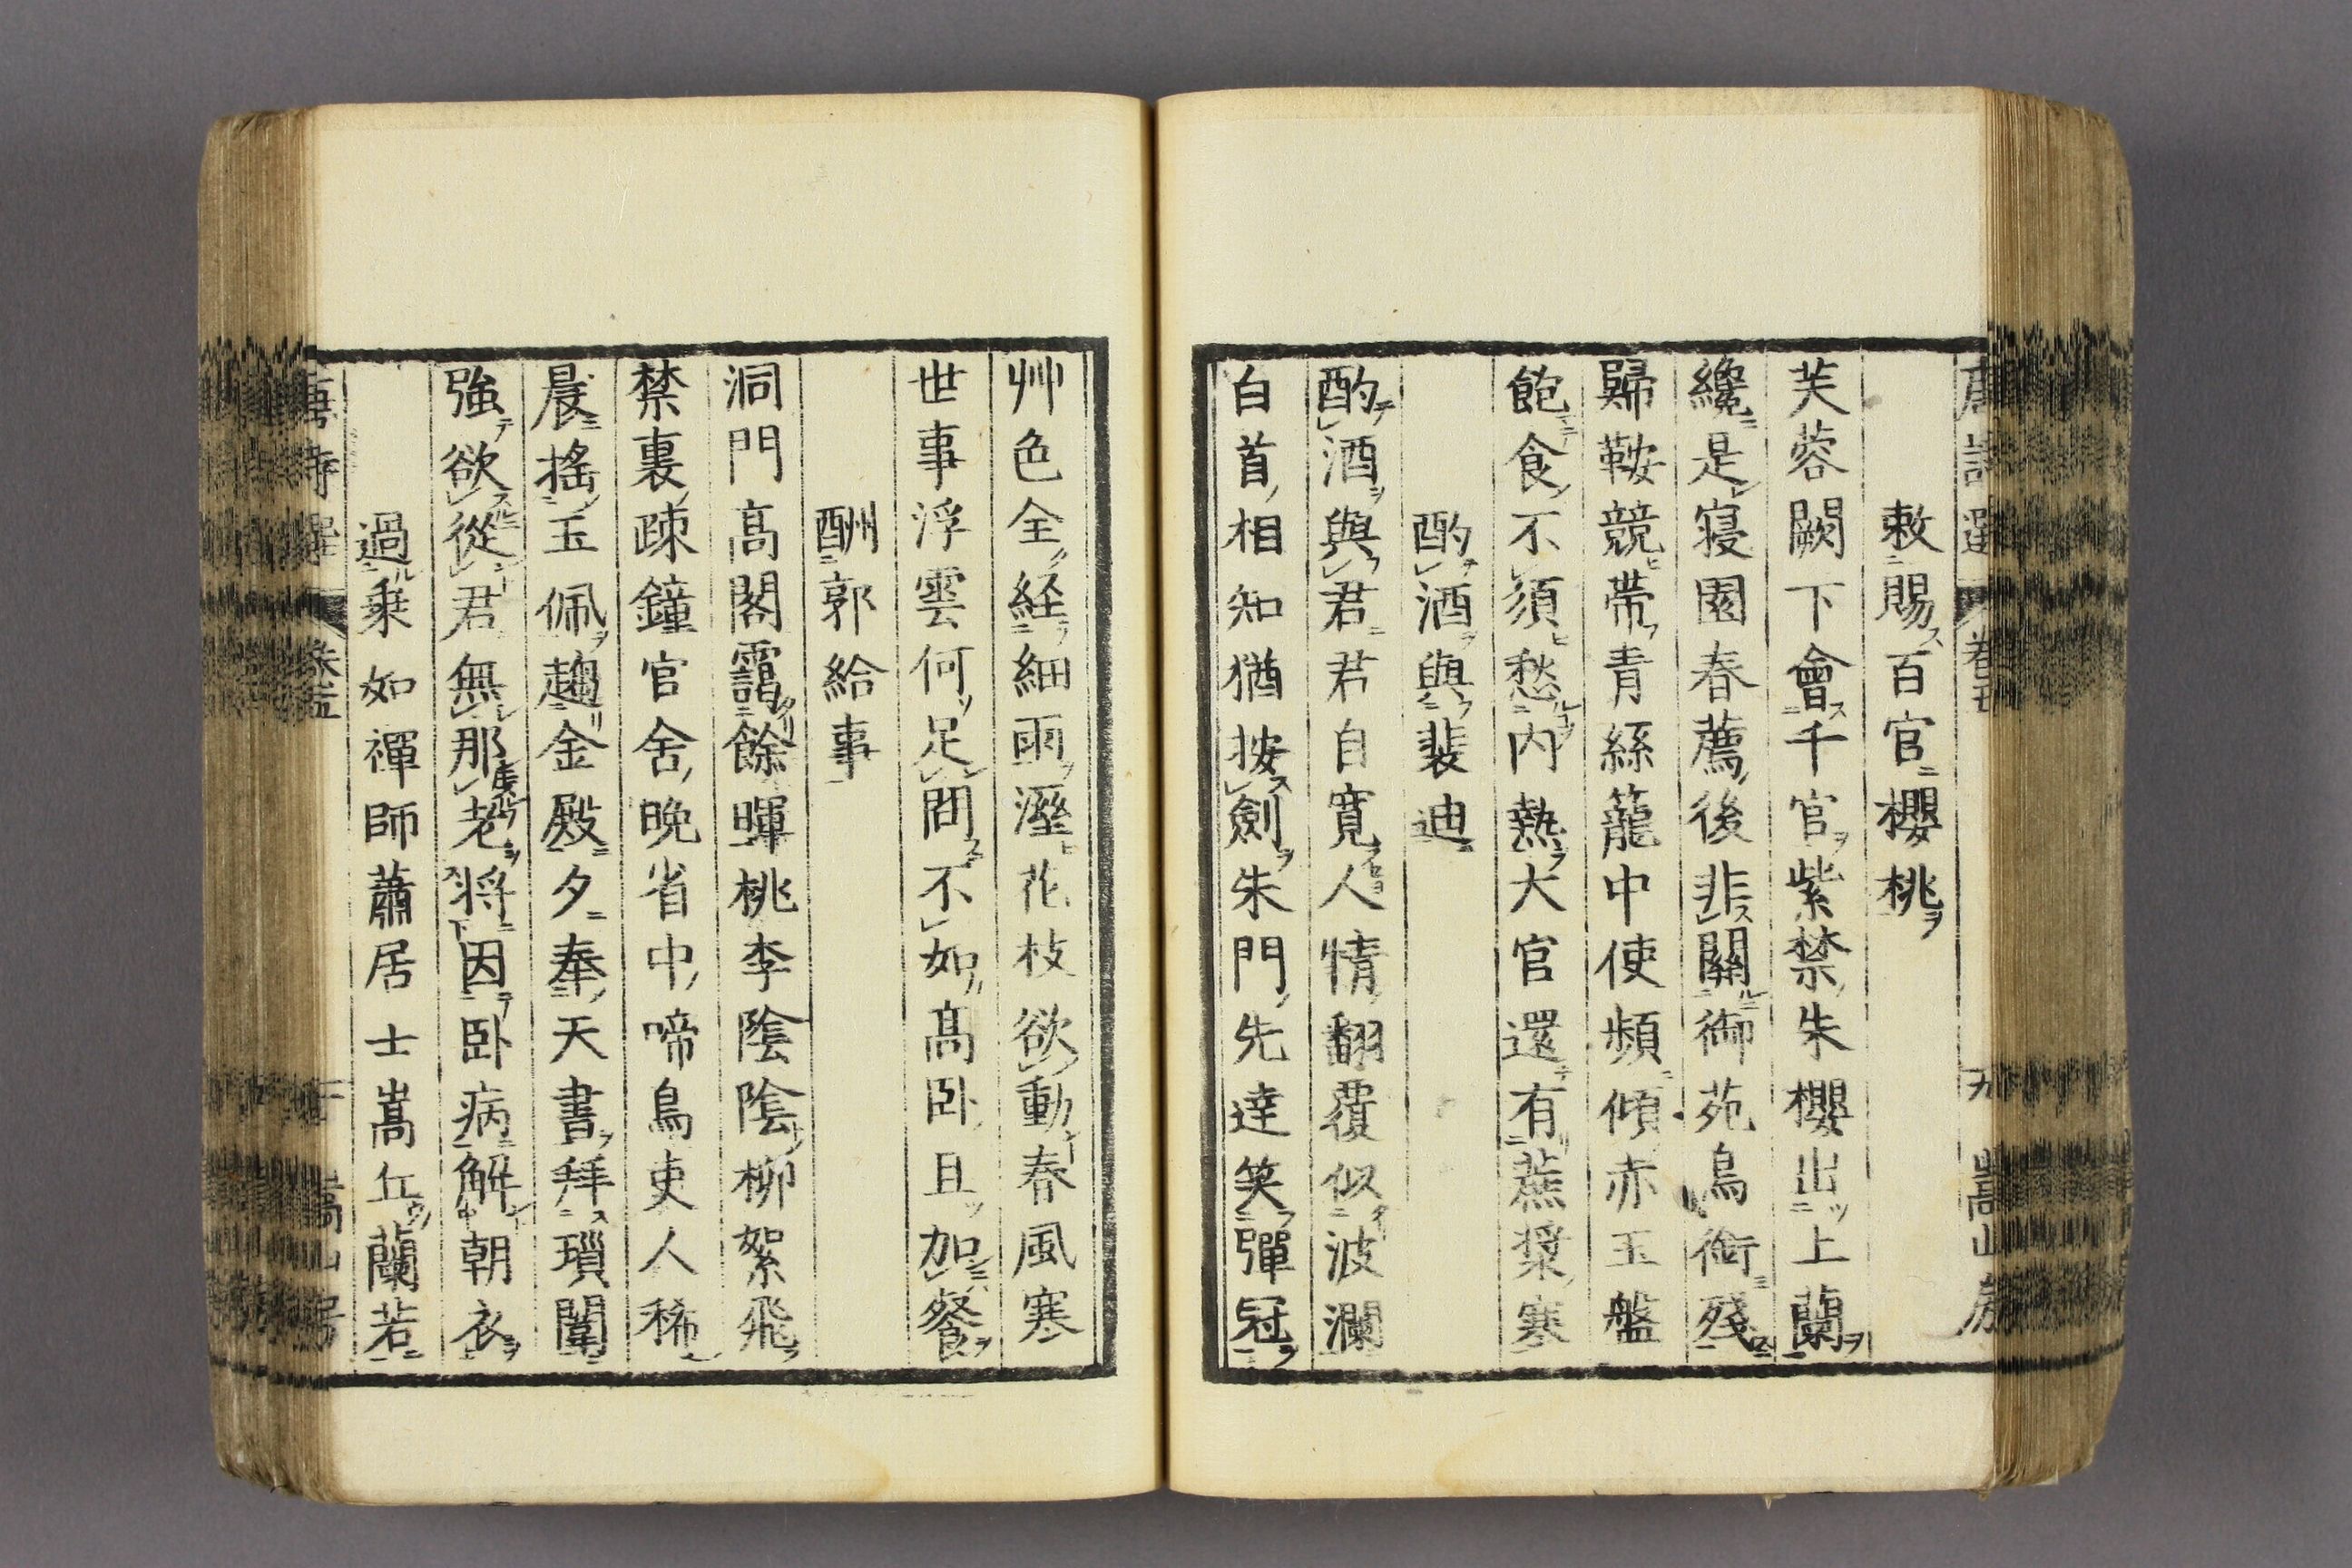 敕賜百官櫻桃
芙蓉闕下會千官紫禁朱櫻出上蘭
纔是寝園春薦後非關御苑鳥銜殘
歸鞍競帶青絲籠中使頻傾赤玉盤
飽食不須愁内熱大官還有蔗漿寒
酌酒與裴迪
酌酒與君君自寛人情翻覆似波瀾
白首相知猶按劍朱門先達笑彈冠
艸色全経細雨溼花枝欲動春風寒
世事浮雲何足問不如髙卧且加餐
酬郭給事
洞門髙閣靄餘暉桃李陰陰柳絮飛
禁裏疎鐘官舍晩省中啼鳥吏人稀
晨搖玉佩趨金殿夕奉天書拜瑣闈
強欲從君無那老将因卧病解朝衣
過乗如禪師蕭居士嵩丘蘭若